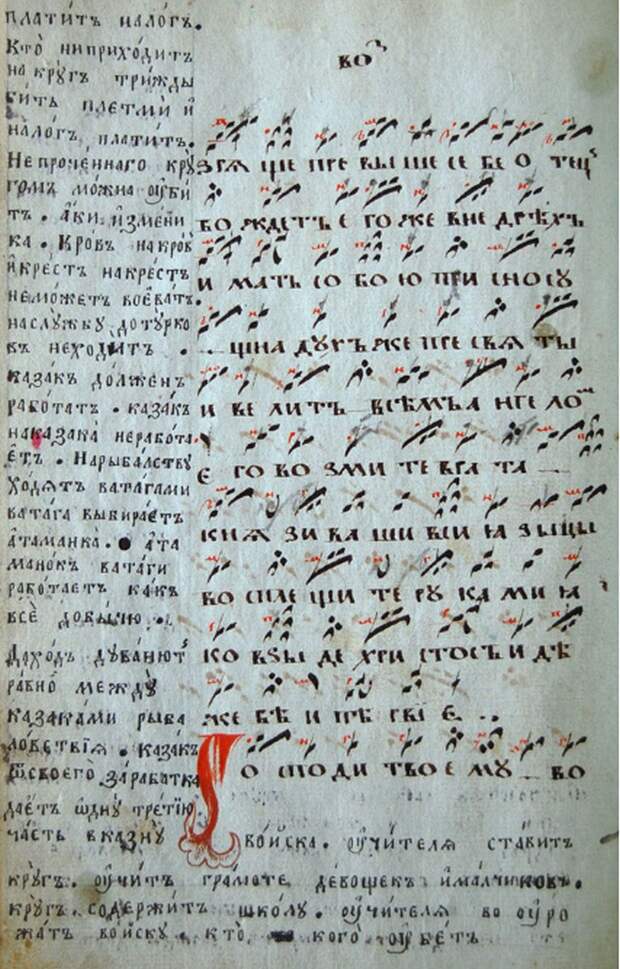 платитъ налогъ.
Кто̀ ниприхо́дитъ
на крꙋ́гъ три́жды
бить плетмѝ и҆
нало́гъ платитъ.
Непроче́ннаго крꙋ̀
гомъ мо́жна оу҆би́
тъ . а҆ки и҆змени
ка . Кровъ на кровъ
и҆ крестъ накре́стъ
неможетъ воева́тъ.
наслꙋжбꙋ дотꙋрко
въ неходитъ .
каза́къ до́лженъ
рабо́татъ . каза́къ
наказака̀ неработа
етъ . Нарыбалствꙋ
ходятъ вата́гами
ватага выбира́етъ
атаманка̀ . а҆та
мано́къ вата́ги
рабо́таетъ ка́къ
всѐ добычю .
Дахо́дъ дꙋванют
ра́внѡ междꙋ̀
казаками рыба
ловствїѧ . каза́къ
ѿ своегѡ̀ за́рабатка
дае́тъ ѡ҆днꙋ̀ тре́тїю
ча́сть вказнꙋ̀
во
згѧ ше пре вы ше се бе о тецъ
во ждетъ е го же вне дрѣхъ
и мать со бо ю при сносꙋ
щна дꙋхъ же пре свѧ ты
и ве литъ всѣмъ а нге ло
е го во зми те вра та
кнѧ зи ва ши вси ꙗ зы цы
во спле щи те рꙋ ка ми ꙗ
ко взы де хри стосъ и дѣ
же бѣ и пѣ рвї е . .
Го споди твое мꙋ во
во́йска . оу҆чи́телѧ ста́витъ
крꙋ́гъ . оу҆чи́тъ грамоте де́вошек и҆ малчиковъ .
крꙋгъ содержи́тъ шко́лꙋ . оу҆чи́телѧ во оу҆ро
жатъ во́искꙋ . кто̀ кого̀ оу҆бе́тъ